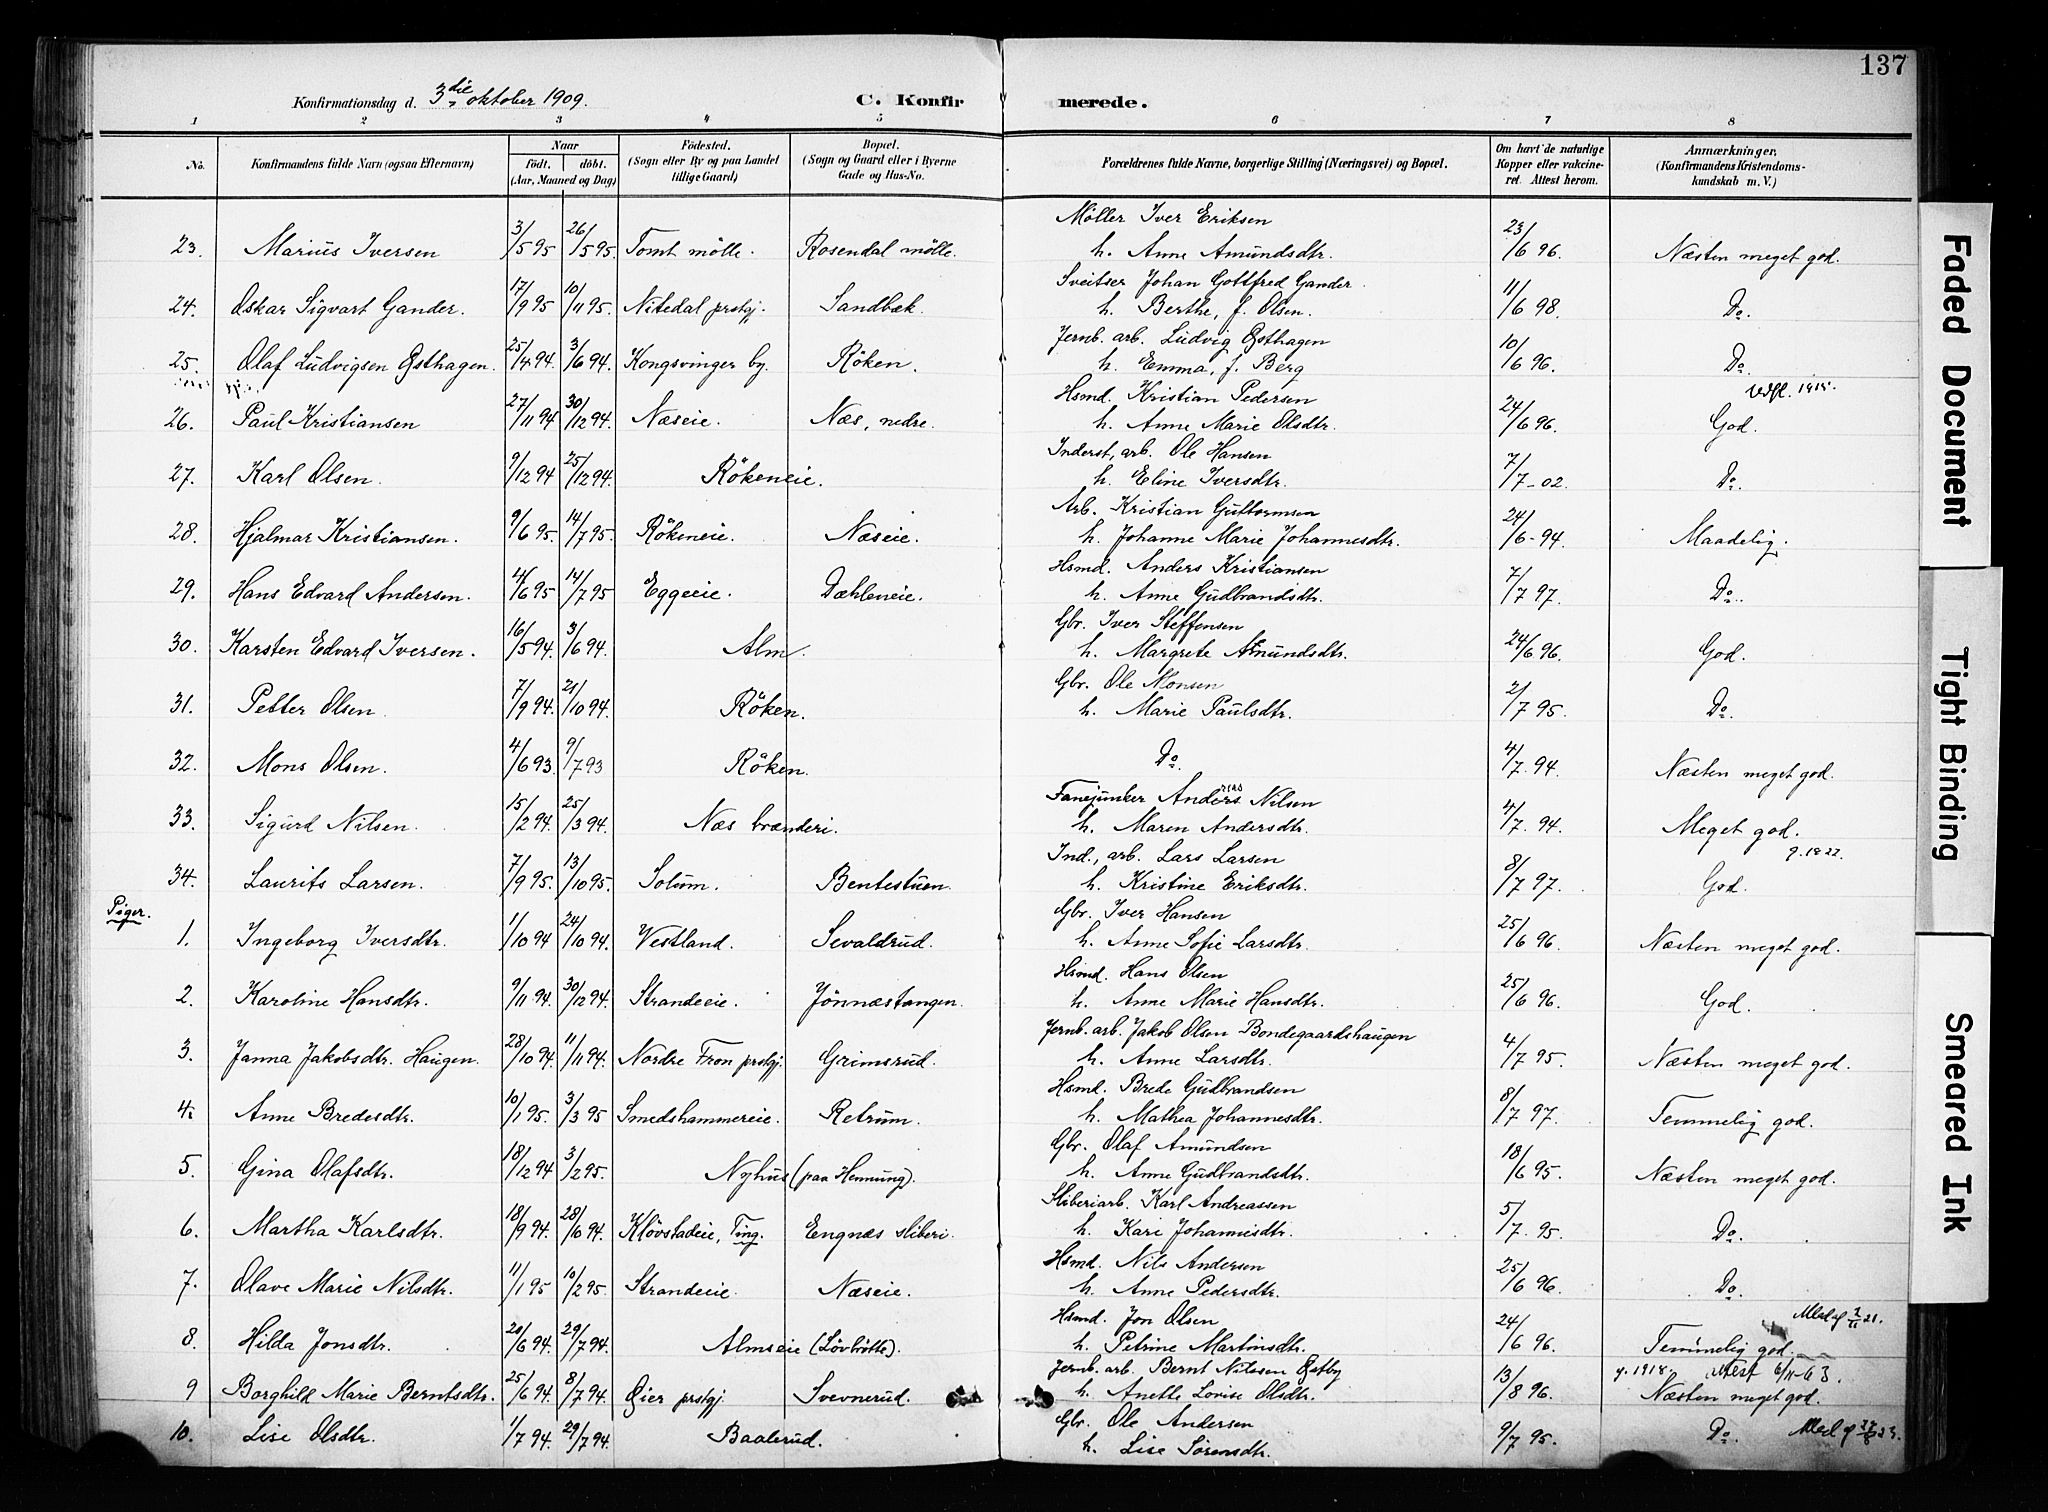 137
Konfirmationsdag d. 3die oktober 1909.
C. Konfirmerede.
1 2 3 4 5 6 7 8
No. Konfirmandens fulde Navn (ogsaa Efternavn) Naar født. døbt. (Aar, Maaned og Dag) Fødested. (Sogn eller By og paa Landet tillige Gaard) Bopæl. (Sogn og Gaard eller i Byerne Gade og Hus-No. Forældrenes fulde Navne, borgerlige Stilling (Næringsvei) og Bopæl. Om havt de naturlige Kopper eller vakcineret. Attest herom. Anmærkninger, (Konfirmandens Kristendomskundskab m. V.)
Møller Iver Eriksen
23. Marius Iversen 3/5 95 26/5 95. Tomt mølle. Rosendal mølle. h. Anne Amundsdtr. 23/6 96. Næsten meget god.
Sveitser Johan Gottfred Gander
24. Oskar Sigvart Gander. 17/9 95 10/11 95. Nitedal prstgj. Sandbæk h. Berthe, f. Olsen. 11/6 98. Do.
Jernb. arb. Ludvig Østhagen
25. Olaf Ludvigsen Østhagen. 25/4 94. 3/6 94. Kongsvinger by. Røken. h. Emma, f. Berg 10/6 96. Do.
Hsmd. Kristian Pedersen
26. Paul Kristiansen 27/11 94 30/12 94. Næseie. Næs, nedre. h. Anne Marie Olsdtr. 24/6 96. God.
Inderst, arb. Ole Hansen
27. Karl Olsen. 9/12 94 25/12 94. Rökeneie. h. Eline Iversdtr. 7/7-02. Do.
Arb. Kristian Guttormsen
28. Hjalmar Kristiansen. 9/6 95. 14/7 95. Rökeneie. Næseie. h. Johanne Marie Johannesdtr. 24/6-94. Maadelig.
Hsmd. Anders Kristiansen
29. Hans Edvard Andersen. 4/6 95 14/7 95 Eggeeie. Dæhleneie. h. Anne Gudbrandsdtr. 7/7 97. Do.
Gbr. Iver Steffensen
30. Karsten Edvard Iversen. 16/5 94. 3/6 94. Alm. h. Margrete Amundsdtr. 24/6 96. God.
Gbr. Ole Monsen
31. Petter Olsen 7/9 94. 21/10 94. Röken. h. Marie Paulsdtr. 2/7 95. Do.
32. Mons Olsen. 4/6 93. 9/7 93 Röken. Do. 4/7 94. Næsten meget god.
Fanejunker Anders Nilsen
33. Sigurd Nilsen. 15/2 94. 25/3 94. Næs brænderi. h. Maren Andersdtr. 4/7 94. Meget god.
Ind., arb. Lars Larsen g. 1922.
34. Laurits Larsen. 7/9 95. 13/10 95. Solum. Bentestuen. h. Kristine Eriksdtr. 8/7 97. God.
Piger.
Gbr. Iver Hansen
1. Ingeborg Iversdtr. 1/10 94 24/10 94. Vestland. Sevaldrud. h. Anne Sofie Larsdtr. 25/6 96. Næsten meget god.
Hsmd. Hans Olsen
2. Karoline Hansdtr. 9/11 94. 30/12 94. Strandeie. Jönnæstangen. h. Anne Marie Hansdtr. 25/6 96. God.
Jernb. arb. Jakob Olsen Bondegaardshaugen
3. Janna Jakobsdtr. Haugen. 28/10 94. 11/11 94. Nordre Fron prstgj. Grimsrud. h. Anne Larsdtr. 4/7 95. Næsten meget god.
Hsmd. Brede Gudbrandsen
4. Anne Bredesdtr. 10/1 95. 3/3 95 Smedshammereie. Retrum. h. Mathea Johannesdtr. 8/7 97. Temmelig god.
Gbr. Olaf Amundsen
5. Gina Olafsdtr. 18/12 94 3/2 95. Nyhus (paa Hennung). h. Anne Gudbrandsdtr. 18/6 95. Næsten meget god.
Sliberiarb. Karl Andreassen
6. Martha Karlsdtr. 18/9 94. 28/10 94. Klövstadeie, Ting. Engnæs sliberi. h. Kari Johannesdtr. 5/7 95. Do.
Hsmd. Nils Andersen
7. Olave Marie Nilsdtr. 11/1 95 10/2 95. Strandeie. Næseie. h. Anne Pedersdtr. 25/6 96. Do.
Hsmd. Jon Olsen
8. Hilda Jonsdtr. 20/6 94. 29/7 94. Almseie (Lövbråtte). h. Petrine Martinsdtr. 24/6 96. Temmelig god.
Jernb. arb. Bernt Nilssen Østby g. 1918. Attest 6/11-63.
9 Borghild Marie Berntsdtr. 25/6 94. 8/7 94. Øier prstgj. Svevnerud. h. Anette Lovise Olsdtr. 13/8 96. Næsten meget god.
Gbr. Ole Andersen
10. Lise Olsdtr. 1/7 94. 29/7 94. Baalerud. h. Lise Sörensdtr. 9/7 95. Do.
Faded Document
Tight Binding
Smeared Ink